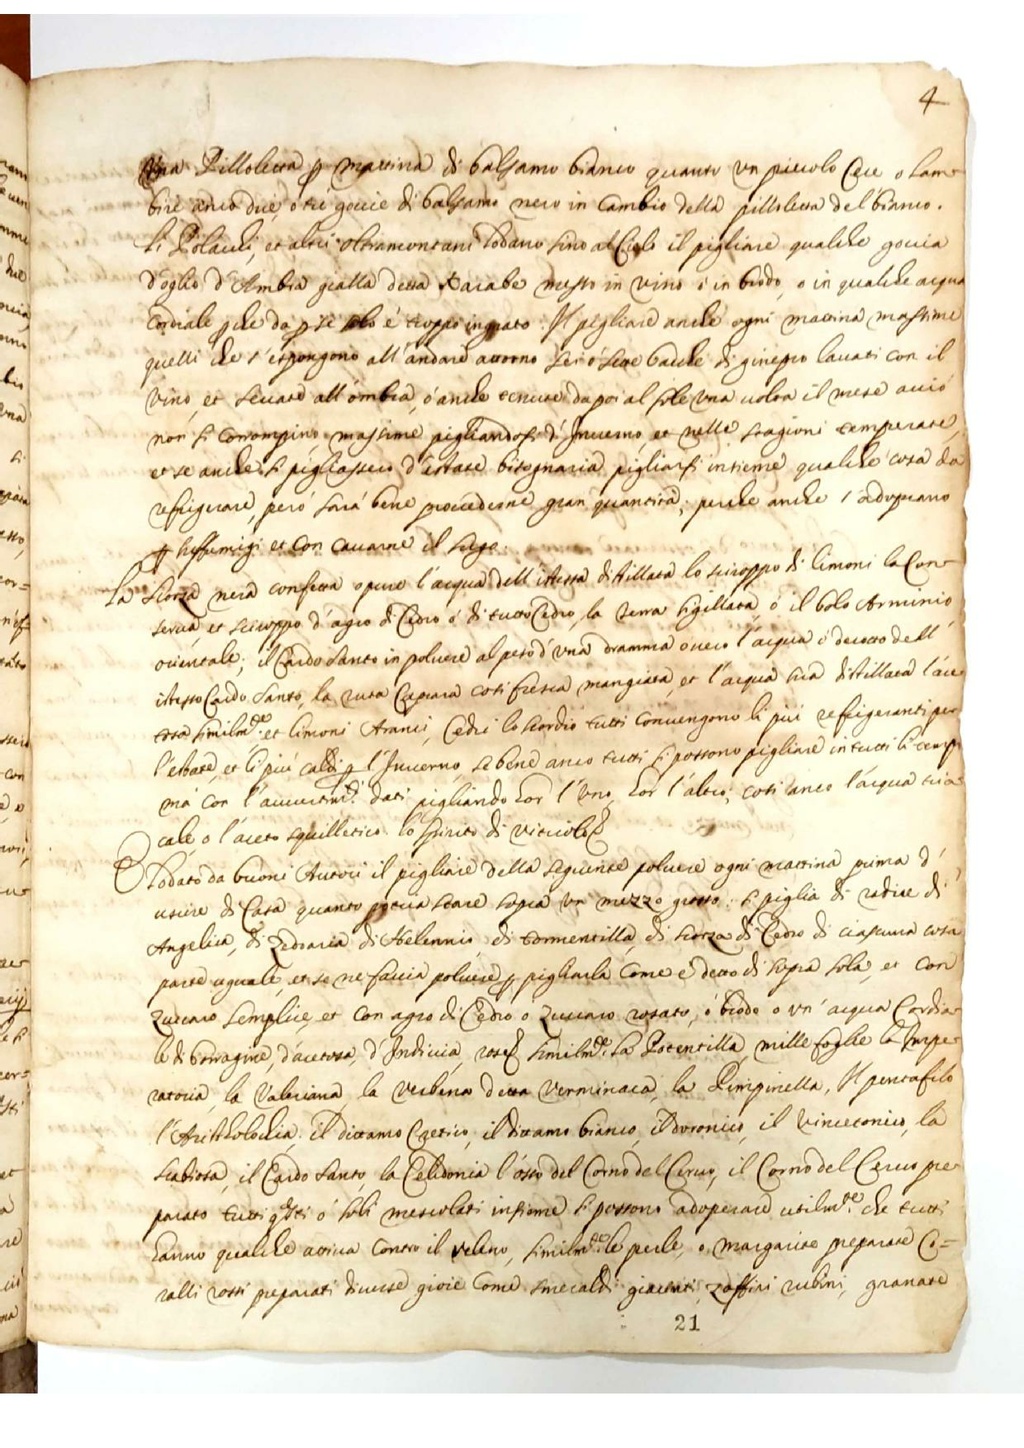 4
Una Pilloletta p mattina di balsamo bianco quanto un piccolo Cece o lam-
bire anco due, o tre goccie di balsamo nero in Cambio della pilloletta del bianco.
li Polacchi, et altri oltramontani lodano sino al Cielo il pigliare qualche goccia
d'oglio d'Ambra gialla detta Karabe messo in vino ò in brodo, o in qualche acqua
Cordiale p che da p se solo é troppo ingrato. Il pigliare anche ogni mattina massime
quelli che s'espongono all'andare attorno sei ó sette bacche di ginepro lavati con il
vino, et seccate all'ombra, ó anche tenute dapoi al sole una volta il mese acció
non si corrompino massime pigliandosi d'Inuerno et nelle stagioni temperate,
et se anche si pigliassero d'estate bisognaria pigliarsi insieme qualche cosa da
refrigerare, peró sará bene procederne gran quantitá, perche anche s'adoprano
p suffumigi et con cauarne il sugo.
La scorza nera confetta opure l'acqua dell'istessa distillata lo sciroppo di limoni la Con-
serua et sciroppo d'agro di Cedro ó di tutto Cedro, la terra sigillata, ó il bolo Arminio
orientale, il Cardo santo in poluere al peso d'una dramma ouero l'acqua ó decotto dell'
istesso Cardo santo, la ruta Capraria cosi fresca mangiata, et l'acqua sua distillata l'ace-
tosa similmte. et limoni Aranci, Cedri lo scordio tutti conuengono li piú refrigeranti per
l'estate, et li piú caldi p l'Inuerno, se bene anco tutti si possono pigliare in tutti li tempi
má con l'auuertimti. dati pigliando hor l'uno, hor l'altro, cosi anco l'acqua teria
cale, o l'aceto squilletico lo spirito di vitriolo
É lodato da buoni Autori il pigliare della seguente poluere ogni mattina prima d'
uscire di Casa quanto potria stare sopra un mezzo grosso: si piglia di radice di
Angelica, di Zedoaria di Helennio di tormentilla di scorza di Cedro di ciascuna cosa
parte uguale, et se ne faccia poluere p pigliarla come é detto di sopra sola, et con
zuccaro semplice, et con agro di Cedro o zuccaro rosato, ó brodo o un'acqua Cordia-
le di borragine, d'acetosa, d'Indivia, rose similmte. la Potentilla, mille foglie la Impe-
ratoria, la Valeriana, la verbena detta verminaca, la Pimpinella, Il pentafilo
l'Aristolochia, il dittamo Cretico, il dittamo bianco, il doronico, il Vincetonico, la
scabiosa, il Cardo santo, la Celidonia l'osso del Corno del Ceruo, il Corno del Ceruo pre-
parato tutti questi ó soli mescolati insieme si possono adoperare utilmte. che tutti
hanno qualche attiua contro il veleno, similmte. le perle, o margarite preparate Co=
ralli rossi preparati diuerse gioie come smeraldi giacinti, zaffiri rubini, granate
21